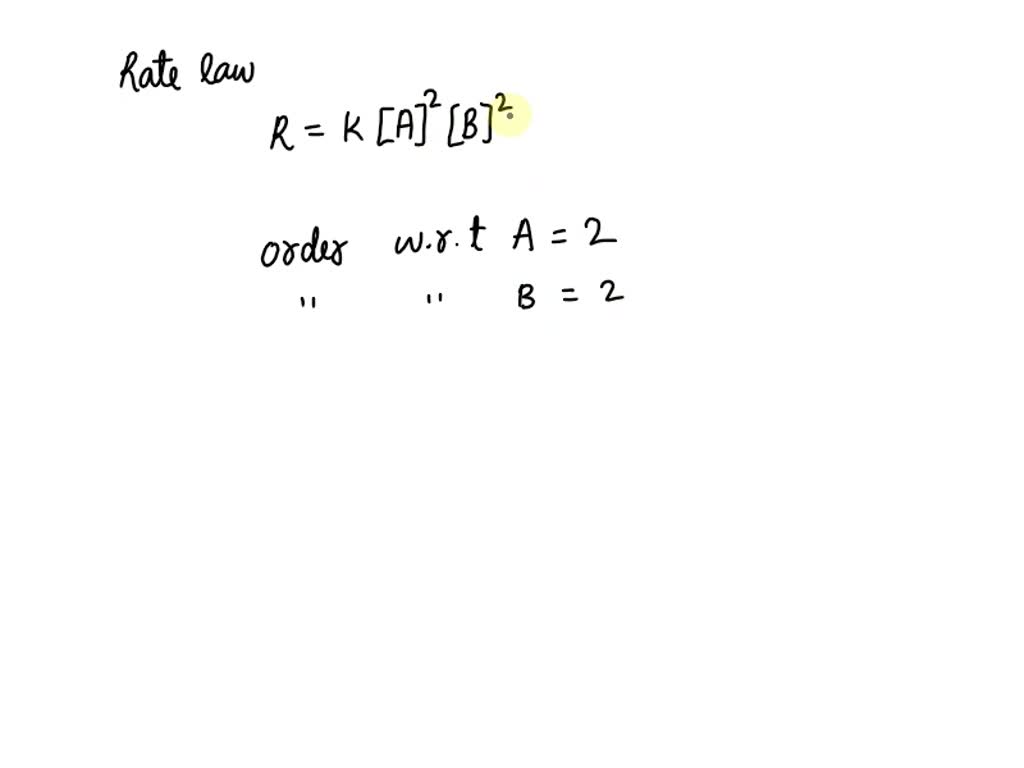 Rate law
R = K [A]² [B]²
order w.r.t A = 2
" " B = 2